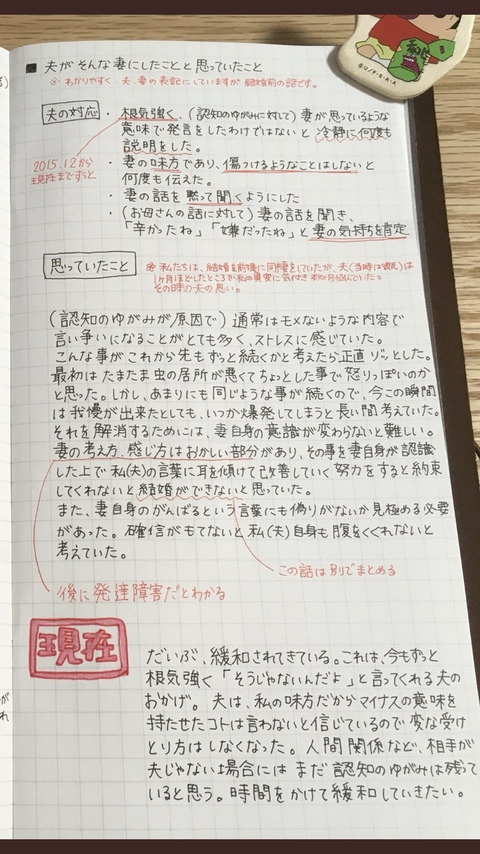 ■ 夫がそんな妻にしたことと思っていたこと
※ わかりやすく 夫、妻の表記にしていますが 結婚前の話です。
夫の対応
・根気強く、(認知のゆがみに対して) 妻が思っているような
意味で発言をしたわけではないと 冷静に何度も
説明をした。
2015.12から
現在までずっと
・妻の味方であり、傷つけるようなことはしないと
何度も伝えた。
・妻の話を黙って聞くようにした
・(お母さんの話に対して) 妻の話を聞き、
「辛かったね」「嫌だったね」と妻の気持ちを肯定
思っていたこと
※ 私たちは、結婚を前提に同棲をしていたが、夫(当時は彼氏)は
1ヶ月ほどしたところで私の異変に気付き
その時の夫の思い。
(認知のゆがみが原因で) 通常はモメないような内容で
言い争いになることがとても多く、ストレスに感じていた。
こんな事がこれから先もずっと続くかと考えたら正直ゾッとした。
最初は たまたま虫の居所が悪くてちょっとした事で怒りっぽいのか
と思った。しかし、あまりにも同じような事が続くので、今この瞬間
は我慢が出来たとしても、いつか爆発してしまうと長い間考えていた。
それを解消するためには、妻自身の意識が変わらないと難しい。
妻の考え方、感じ方はおかしい部分があり、その事を妻自身が認識
した上で私(夫)の言葉に耳を傾けて改善していく努力をすると約束
してくれないと結婚ができないと思っていた。
また、妻自身のがんばるという言葉にも偽りがないか見極める必要
があった。確信がもてないと私(夫)自身も腹をくくれないと
考えていた。
この話は別でまとめる
後に発達障害だとわかる
現在
だいぶ、緩和されてきている。これは、今もずっと
根気強く「そうじゃないんだよ」と言ってくれる夫の
おかげ。夫は、私の味方だからマイナスの意味を
持たせたコトは言わないと信じているので変な受け
とり方はしなくなった。人間関係など、相手が
夫じゃない場合には まだ認知のゆがみは残って
いると思う。時間をかけて緩和していきたい。